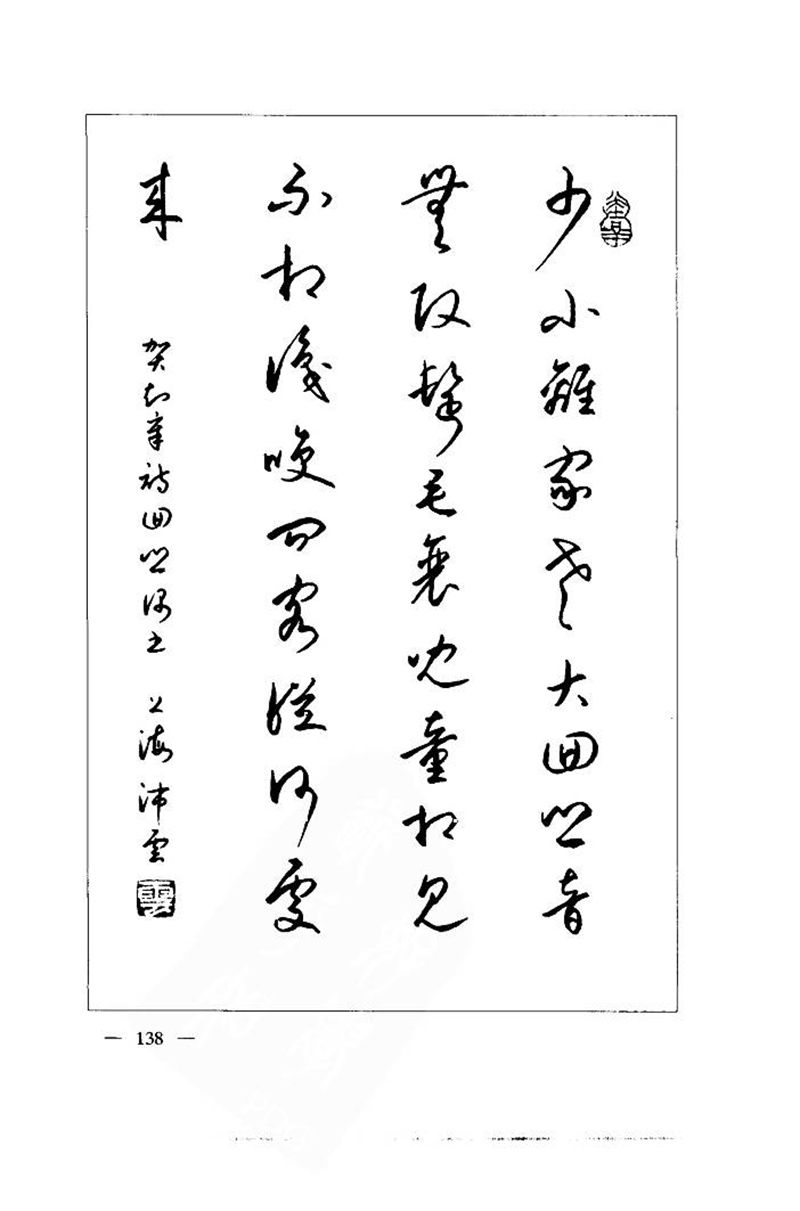 少小離家老大回鄉音
無改鬢毛衰兒童相見
不相識咲問客從何處
來
賀知章詩回鄉偶書 上海沛雲
— 138 —